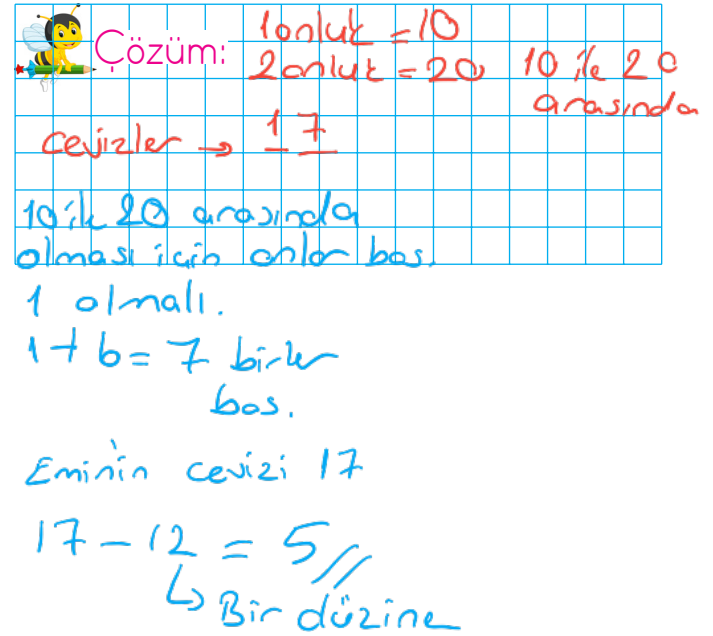 Çözüm:
1 onluk = 10
2 onluk = 20
10 ile 20
arasında
Cevizler → 1 7
10 ile 20 arasında
olması için onlar bas.
1 olmalı.
1 + 6 = 7 birler
bas.
Emin'in cevizi 17
17 - 12 = 5 //
↳ Bir düzine